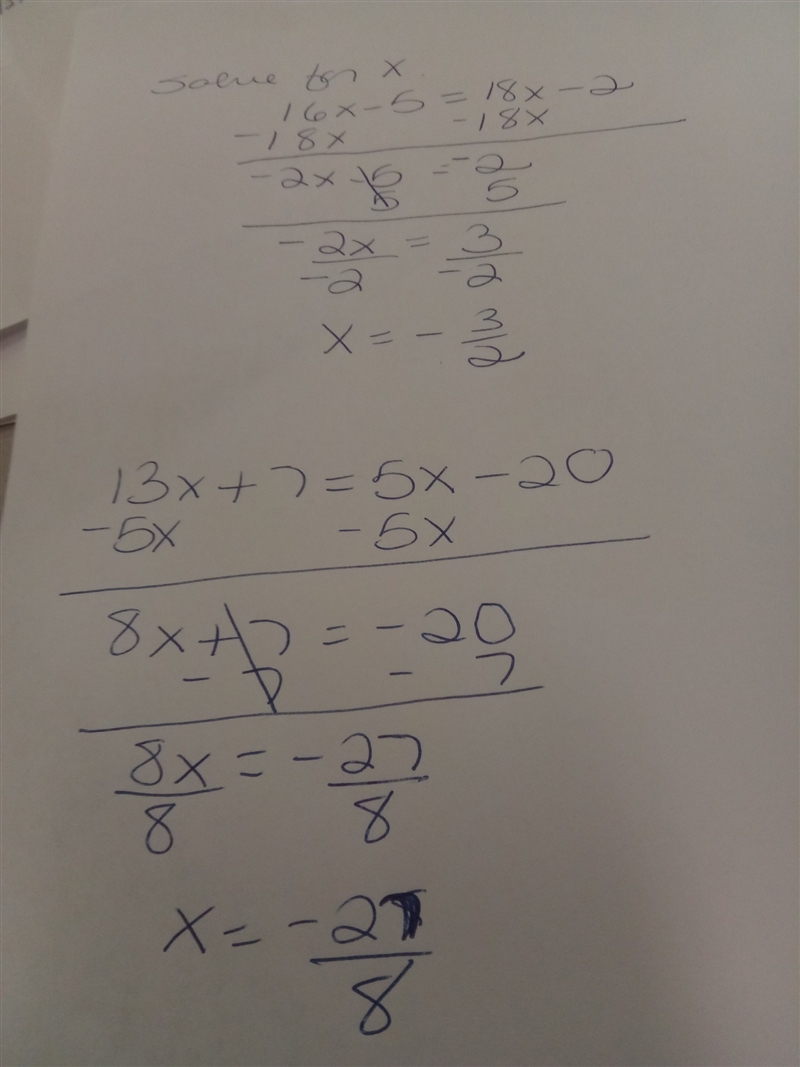 Solve for x
16x - 5 = 18x - 2
-18x -18x
-2x - 5 = -2
5 5
-2x = 3
-2 -2
x = - 3/2
13x + 7 = 5x - 20
-5x -5x
8x + 7 = -20
- 7 - 7
8x = -27
8 8
x = -27
8